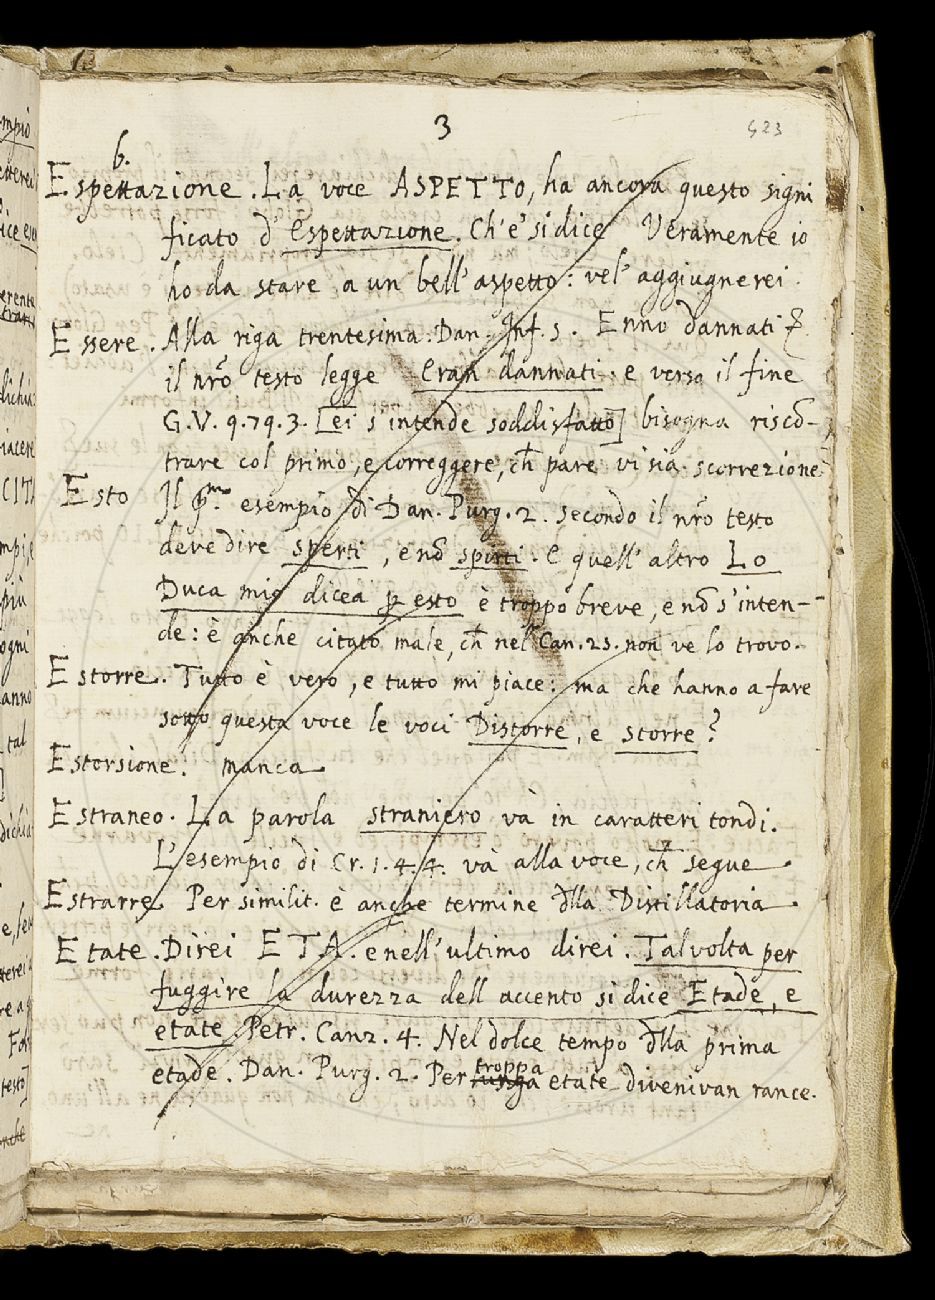 3
423
b.
Espettazione. La voce ASPETTO, ha ancora questo signi
ficato d'Espettazione. Ch'e' si dice Veramente io
ho da stare a un bell'aspetto: vel' aggiugnerei.
Essere. Alla riga trentesima. Dan. Inf. 5. Enno dannati
il nrõ testo legge Eran dannati. e verso il fine
G.V. 9.79.3. [ei s'intende soddisfatto] bisogna riscõ-
trare col primo, e correggere, ch̃ pare vi sia scorrezione.
Esto Il p.mo esempio di Dan. Purg. 2. secondo il nrõ testo
deve dire sperti, e nõ spirti. e quell'altro Lo
Duca mio dicea p esto è troppo breve, e nõ s'inten-
de: è anche citato male, ch̃ nel Can. 25. non ve lo trovo.
Estorre. Tutto è vero, e tutto mi piace: ma che hanno a fare
sotto questa voce le voci Distorre, e storre?
Estorsione. manca
Estraneo. La parola straniero và in caratteri tondi.
L'esempio di Cr. 1.4.4. và alla voce, ch̃ segue.
Estrarre Per similit. è anche termine dlla Distillatoria.
Etate. Direi ETA. e nell'ultimo direi. Talvolta per
fuggire la durezza dell accento si dice Etade, e
etate Petr. Canz. 4. Nel dolce tempo dlla prima
etade. Dan. Purg. 2. Per troppa etate divenivan rance.